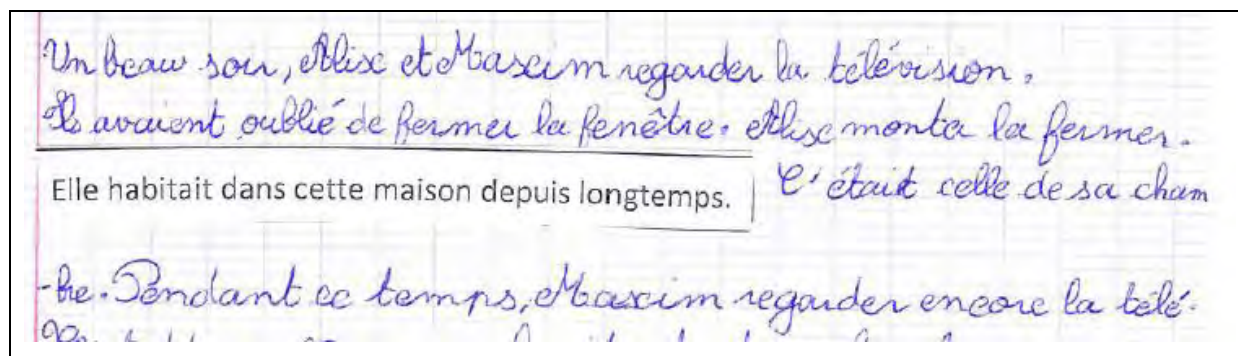 Un beau soir, Alixe et Maxim regarder la télévision.
Ils avaient oublié de fermer la fenêtre. Alixe monta la fermer.
Elle habitait dans cette maison depuis longtemps. C'était celle de sa cham
-bre. Pendant ce temps, Maxim regarder encore la télé.